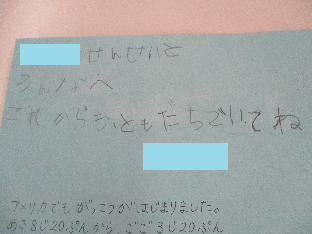 せんせいと
みんなへ
これからもともだちでいてね
アメリカでも がっこうが はじまりました。
あさ8じ20ぷんから、ごご3じ20ぷん